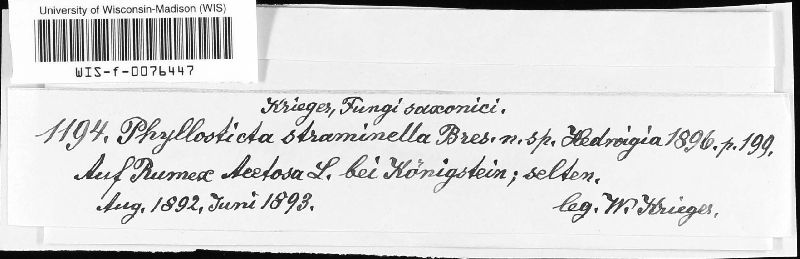 University of Wisconsin-Madison (WIS)
WIS-f-0076447
Krieger, Fungi saxonici.
1194. Phyllosticta straminella Bres. n. sp. Hedwigia 1896. p. 199.
Auf Rumex Acetosa L. bei Königstein; selten.
Aug. 1892. Juni 1893. leg. W. Krieger.